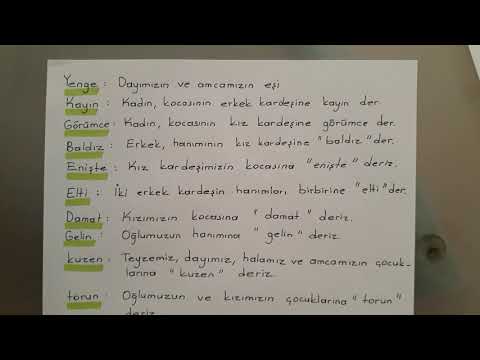 Yenge : Dayımızın ve amcamızın eşi
Kayın : Kadın, kocasının erkek kardeşine kayın der.
Görümce : Kadın, kocasının kız kardeşine görümce der.
Baldız : Erkek, hanımının kız kardeşine "baldız" der.
Enişte : Kız kardeşimizin kocasına "enişte" deriz.
Elti : İki erkek kardeşin hanımları birbirine "elti" der.
Damat : Kızımızın kocasına "damat" deriz.
Gelin : Oğlumuzun hanımına "gelin" deriz.
kuzen : Teyzemiz, dayımız, halamız ve amcamızın çocuk-
larına "kuzen" deriz.
torun : Oğlumuzun ve kızımızın çocuklarına "torun"
deriz